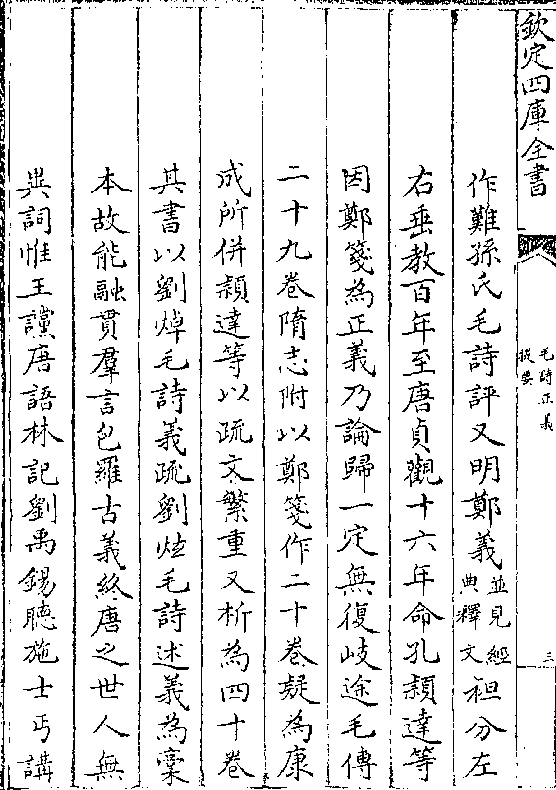 欽定四庫全書
毛詩正義
提要
三
作難孫氏毛詩評又明鄭義並見經典釋文袒分左
右垂教百年至唐貞觀十六年命孔穎達等
因鄭箋為正義乃論歸一定無復歧途毛傳
二十九卷隋志附以鄭箋作二十卷疑為康
成所併穎達等以疏文繁重又析為四十卷
其書以劉焯毛詩義疏劉炫毛詩述義為稾
本故能融貫羣言包羅古義終唐之世人無
異詞惟王讜唐語林記劉禹錫聴施士丐講